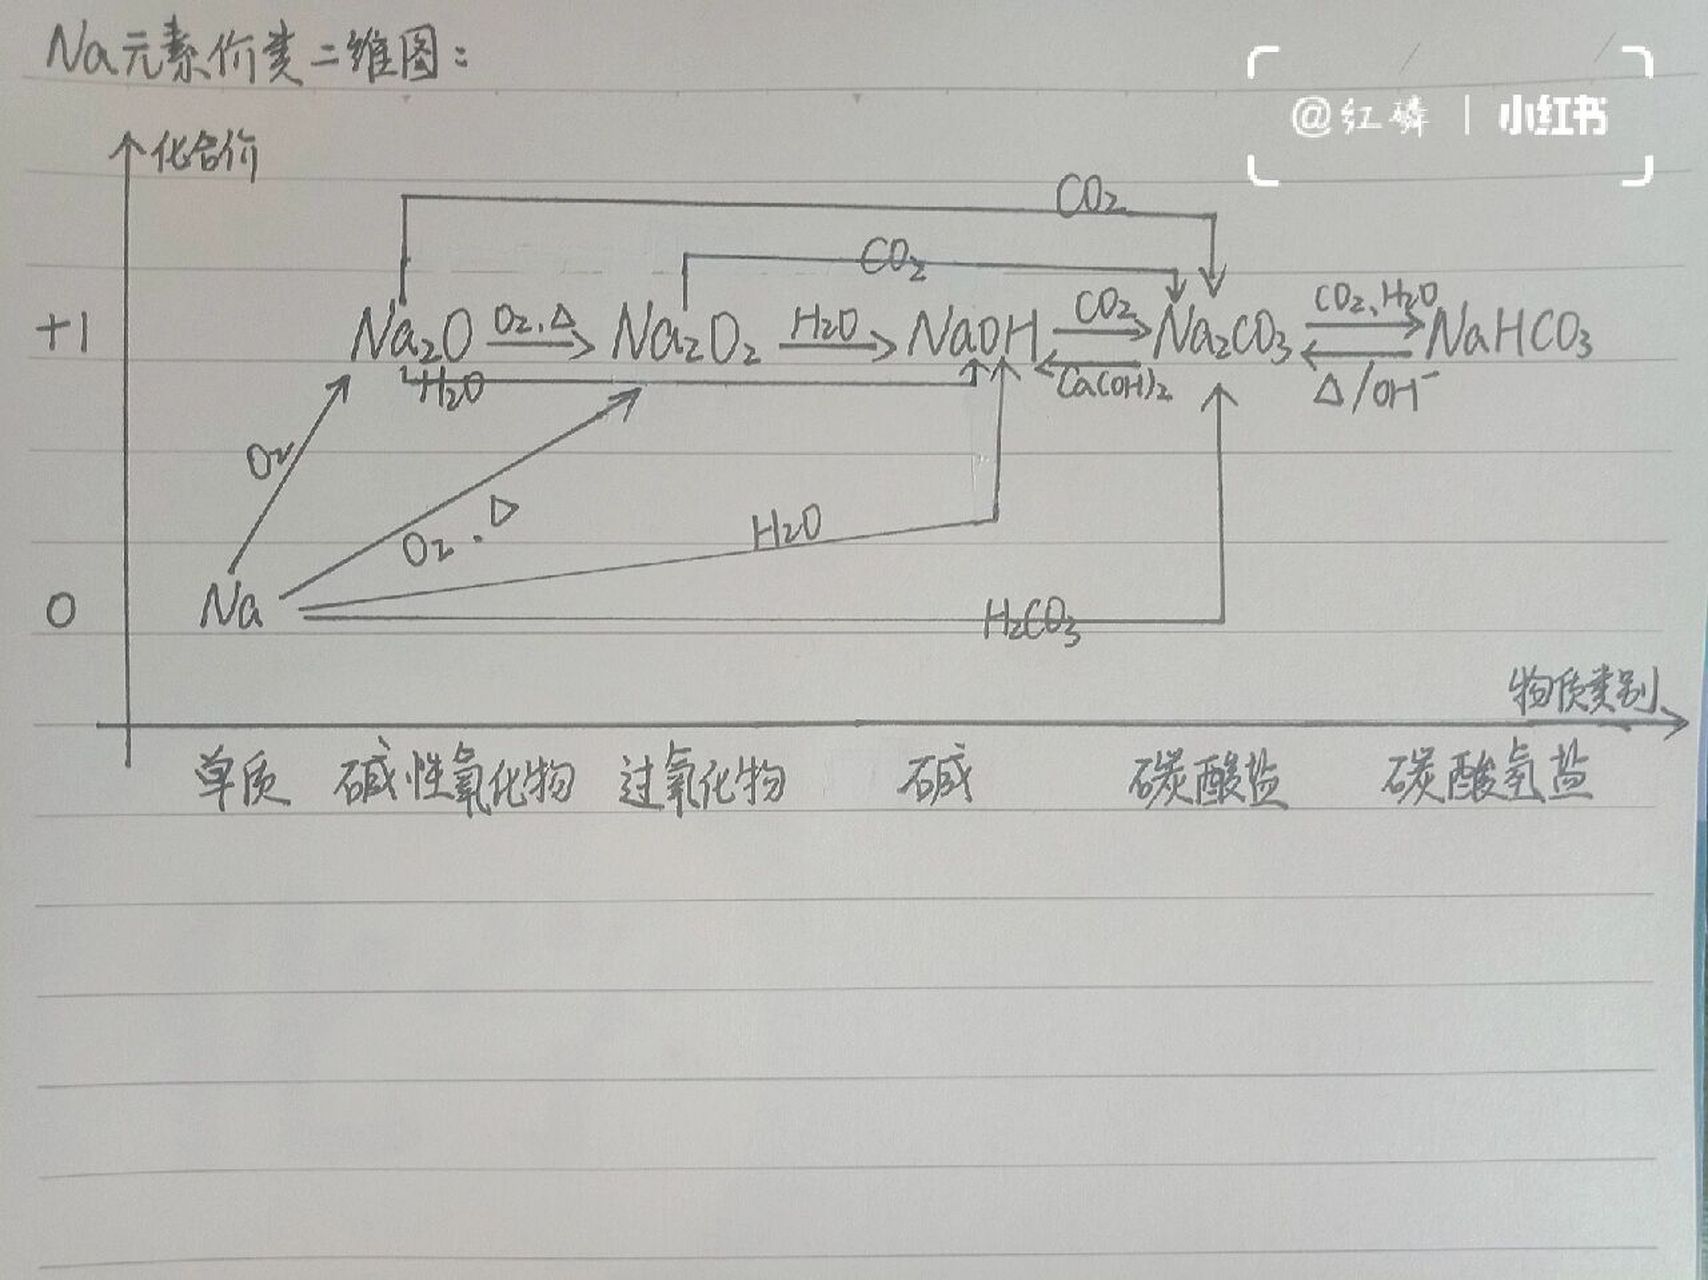 Na元素价类二维图:
@红磷 | 小红书
化合价
CO₂
CO₂
+1 Na₂O O₂、△ Na₂O₂ H₂O NaOH CO₂ Ca(OH)₂ Na₂CO₃ CO₂、H₂O △/OH⁻ NaHCO₃
H₂O
O₂
O₂、△
H₂O
0 Na
H₂CO₃
物质类别
单质 碱性氧化物 过氧化物 碱 碳酸盐 碳酸氢盐